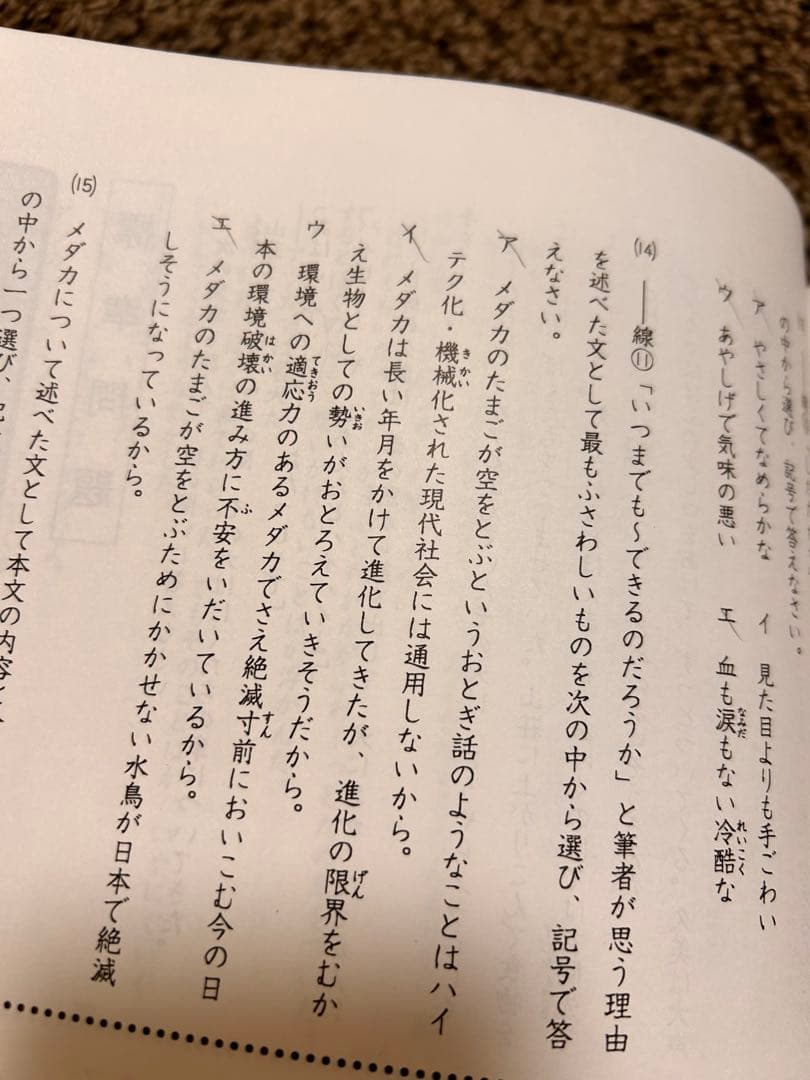 の中から選び、記号で答えなさい。
ア やさしくてなめらかな イ 見た目よりも手ごわい
ウ あやしげで気味の悪い エ 血も涙もない冷酷な
なみだ
れいこく
(14) ――線⑪「いつまでも～できるのだろうか」と筆者が思う理由
を述べた文として最もふさわしいものを次の中から選び、記号で答
えなさい。
ア メダカのたまごが空をとぶというおとぎ話のようなことはハイ
テク化・機械化された現代社会には通用しないから。
きかい
イ メダカは長い年月をかけて進化してきたが、進化の限界をむか
げん
え生物としての勢いがおとろえていきそうだから。
いきお
ウ 環境への適応力のあるメダカでさえ絶滅寸前においこむ今の日
てきおう
すん
本の環境破壊の進み方に不安をいだいているから。
はかい
ふ
エ メダカのたまごが空をとぶためにかかせない水鳥が日本で絶滅
しそうになっているから。
(15) メダカについて述べた文として本文の内容と
の中から一つ選び、記